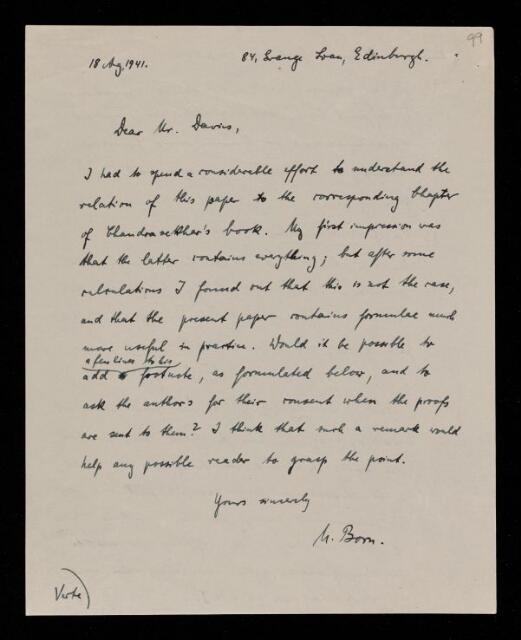 99
18 Aug. 1941. 84, Grange Loan, Edinburgh.
Dear Mr. Davies,
I had to spend a considerable effort to understand the
relation of this paper to the corresponding Chapter
of Chandrasekhar's book. My first impression was
that the latter contains everything; but after some
calculations I found out that this is not the case,
and that the present paper contains formulae much
more useful in practice. Would it be possible to
a few lines to his
add footnote, as formulated below, and to
ask the authors for their consent when the proofs
are sent to them? I think that such a remark would
help any possible reader to grasp the point.
Yours sincerely
M. Born.
Verte)